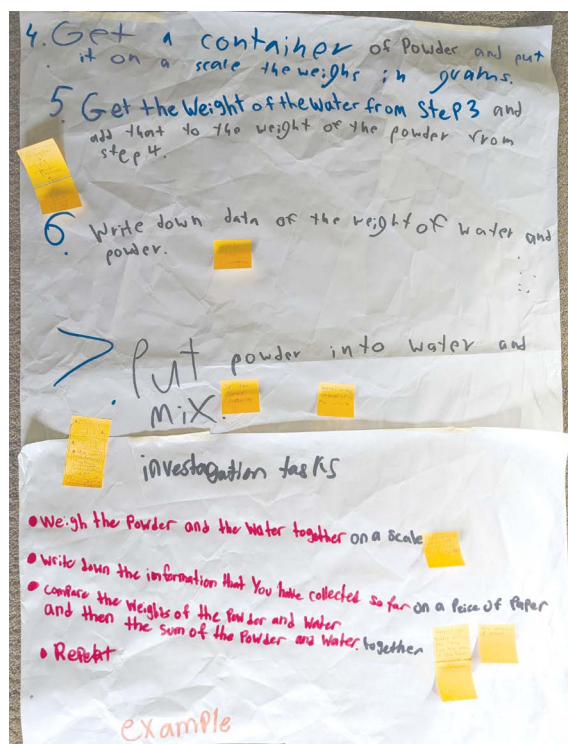 4. Get a container of Powder and put
it on a scale the weighs in grams.
5. Get the Weight of the Water from Step 3 and
add that to the weight of the powder from
step 4.
6. Write down data of the weight of water and
powder.
7. Put powder into water and
mix.
investagation tasks
• Weigh the Powder and the Water together on a scale
• Write down the information that You have collected so far on a Peice of Paper
• compare the Weights of the Powder and Water
and then the sum of the Powder and Water together
• Repeat
example